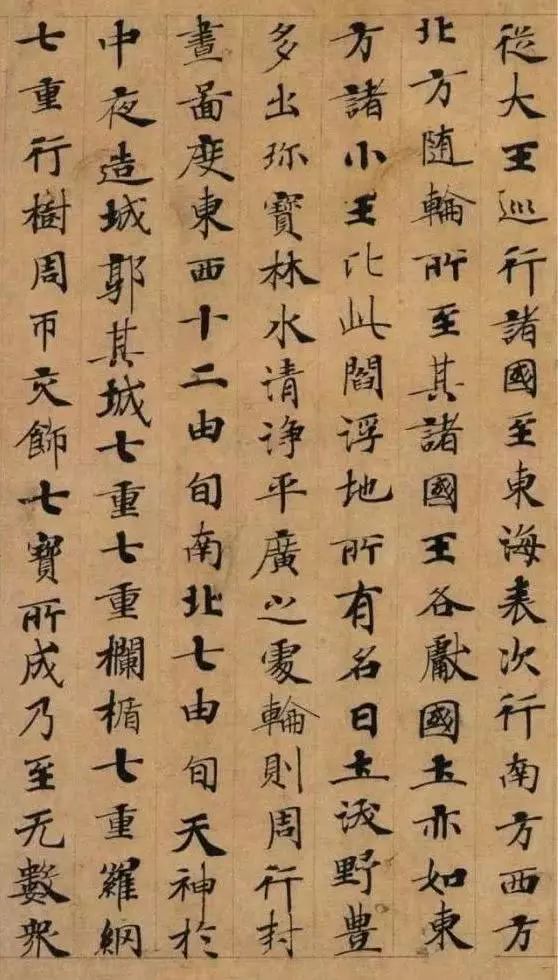 從大王巡行諸國至東海表次行南方西方
北方随輪所至其諸國王各獻國土亦如東
方諸小王比此閻浮地所有名曰土沃野豊
多出珎寶林水清净平廣之處輪則周行封
畫啚度東西十二由旬南北七由旬天神於
中夜造城郭其城七重七重欄楯七重羅網
七重行樹周帀交飾七寶所成乃至无數衆